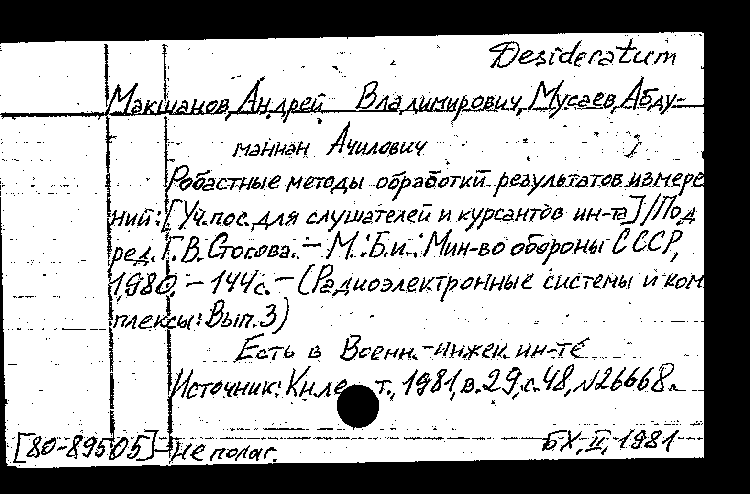 Desideratum
Макшанов, Андрей Владимирович, Мусаев, Абду-
маннан Ачилович
Робастные методы обработки результатов измере
ний: [Уч. пос. для слушателей и курсантов ин-та] / Под
ред. Г. В. – М.: Б. и.: Мин-во обороны СССР,
1980. – 144с. – (Радиоэлектронные системы и ком
плексы: Вып. 3)
Есть в Воен.-инжен. ин-те
Источник: Кн. т., 1981, в. 29, с. 48, N26668.
[80-89505] – Не полаг. БХ, II, 1981